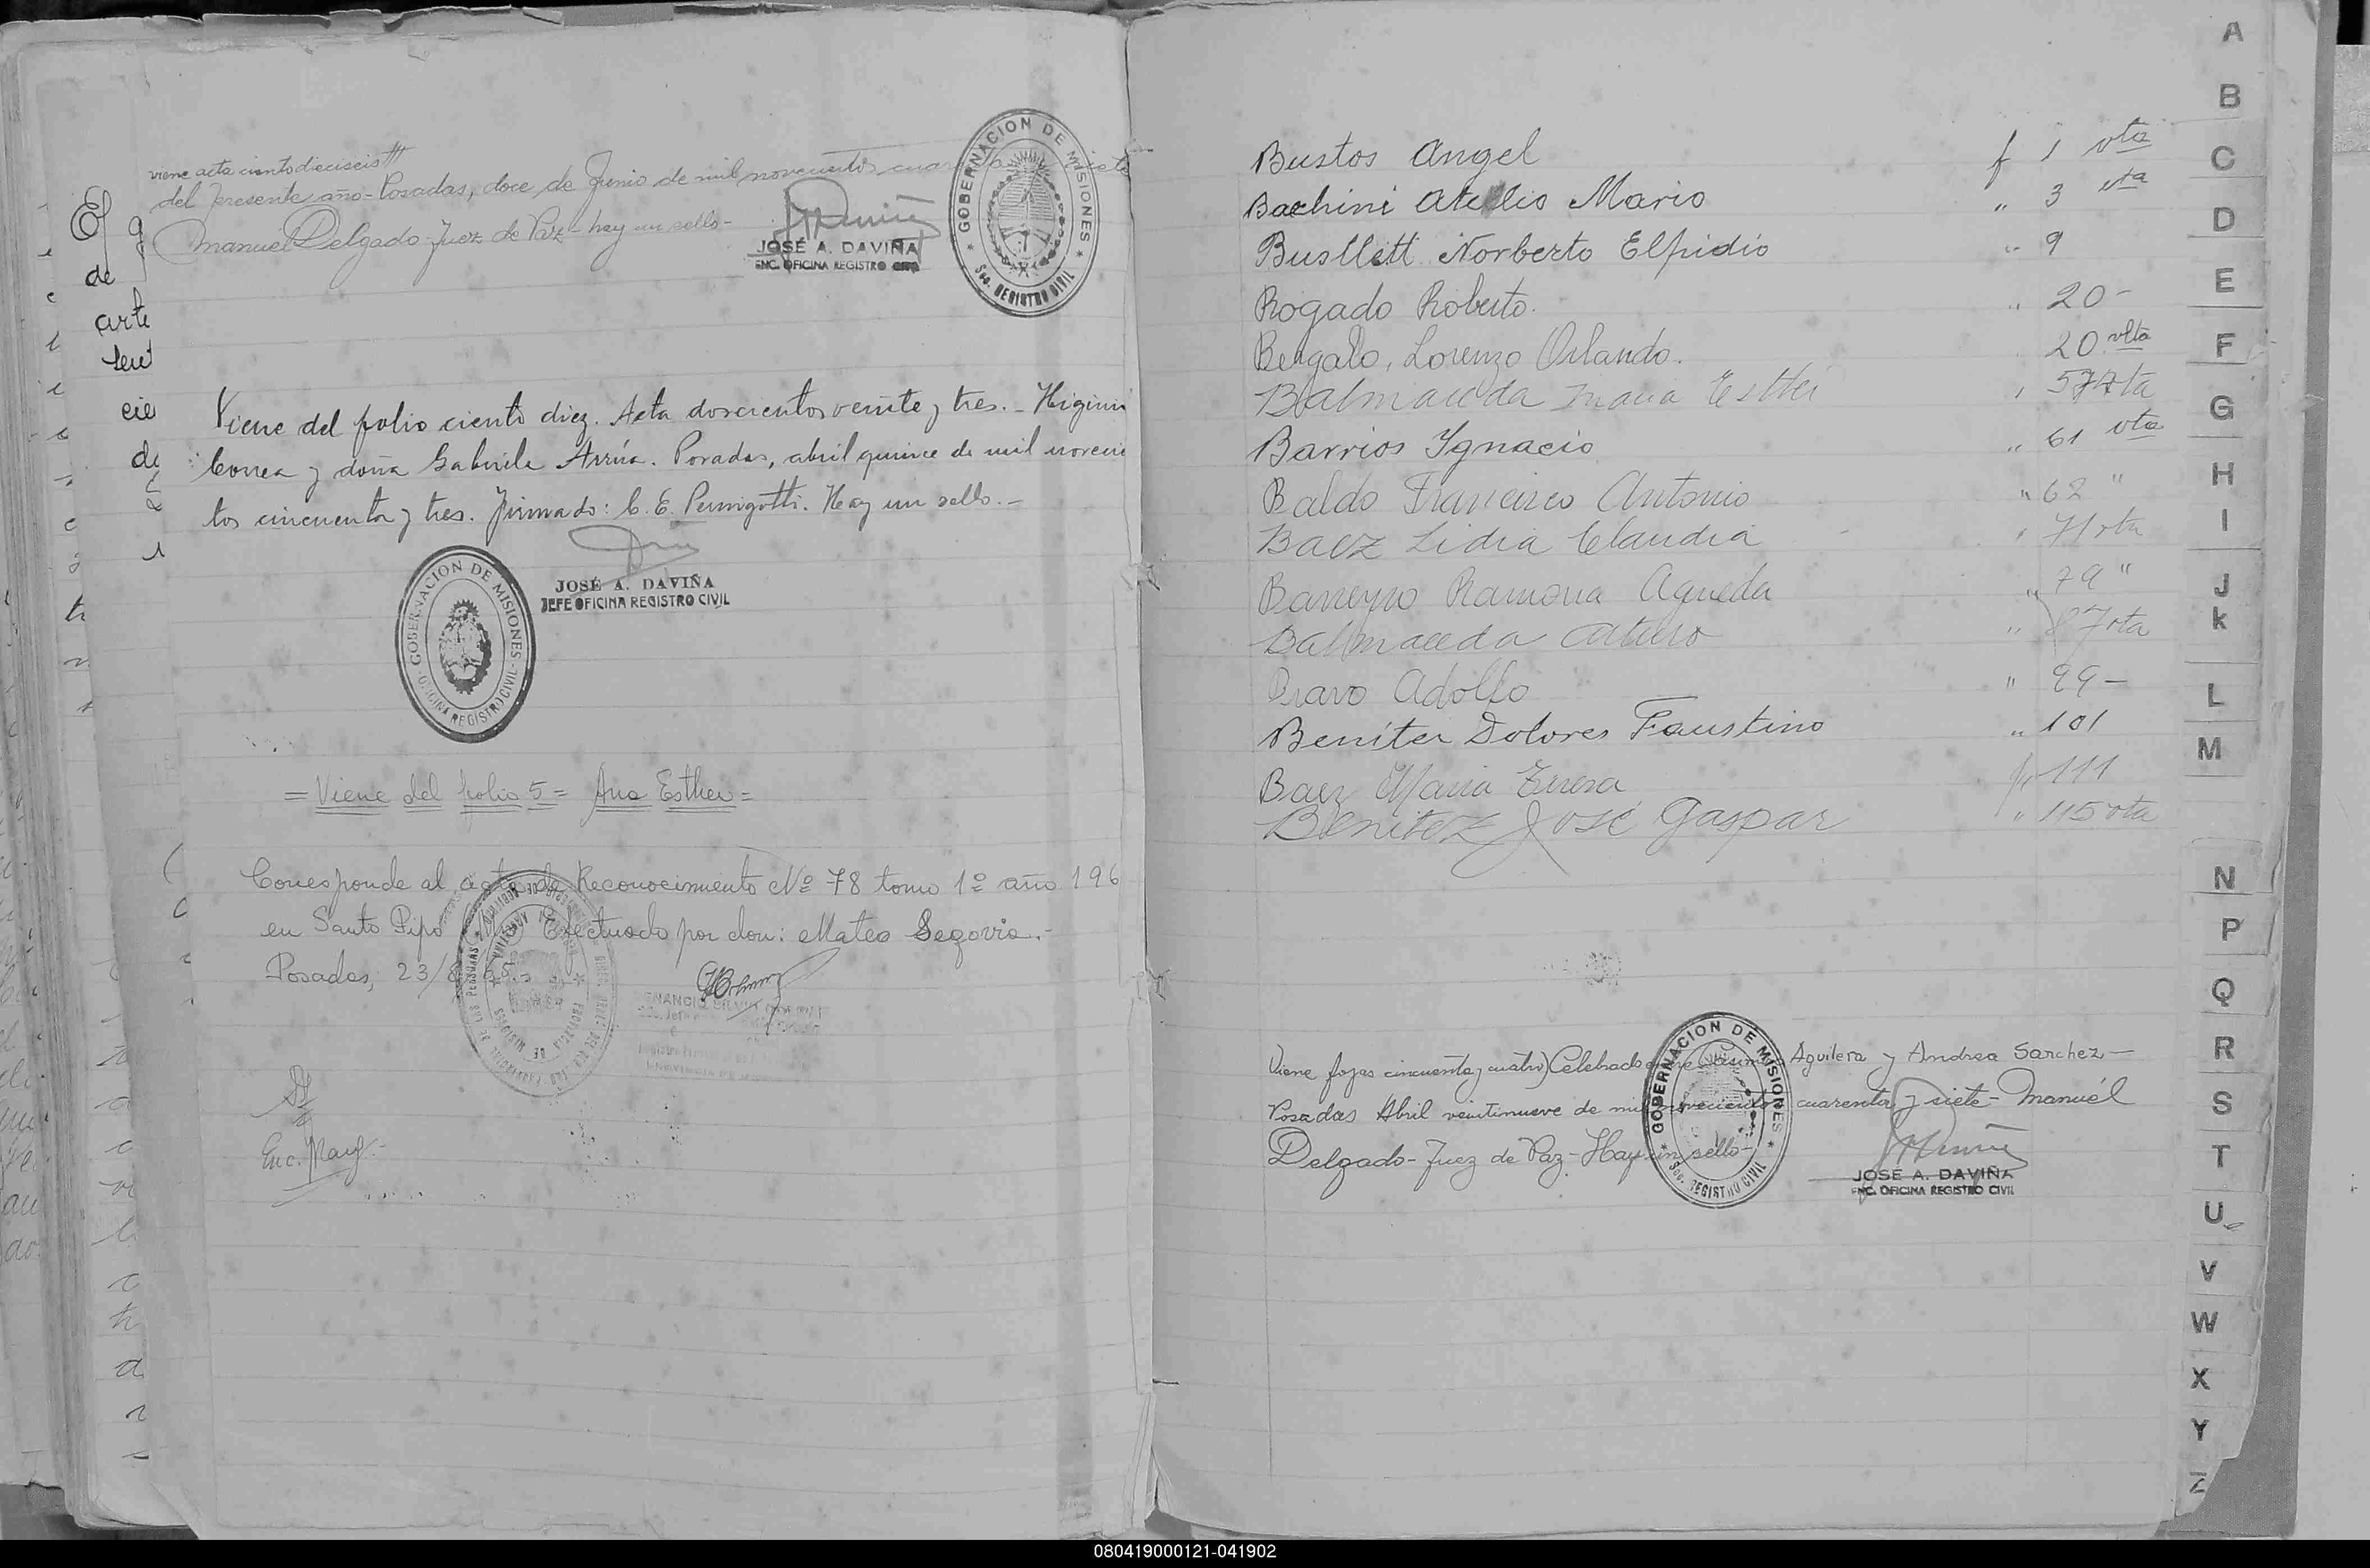 viene acta ciento dieciseis
del presente año - Posadas, doce de Junio de mil novecientos
Manuel Delgado - Juez de Paz - hay un sello -
JOSÉ A. DAVIÑA
ENC. OFICINA REGISTRO CIVIL
GOBERNACION DE MISIONES
Sec. REGISTRO CIVIL
de
arte
cie
Viene del folio ciento diez. Acta doscientos veinte y tres. - Higini
Correa y doña Gabriela Arrúa. Posadas, abril quince de mil novecie
tos cincuenta y tres. Firmado: C. E. Pernigotti. Hay un sello. -
JOSÉ A. DAVIÑA
JEFE OFICINA REGISTRO CIVIL
GOBERNACION DE MISIONES
OFICINA REGISTRO CIVIL
= Viene del folio 5 = Ana Esther =
Corresponde al acta de Reconocimiento Nº 78 tomo 1º año 196
en Santo Pipó Efectuado por don: Mateo Segovia. -
Posadas, 23/8
PROVINCIA DE MISIONES
Bustos Angel f 1 vta
Bachini Atilio Mario " 3 vta
Busllett Norberto Elpidio " 9
Rogado Roberto. " 20 -
Bergalo, Lorenzo Orlando. 20 vlta
Balmaceda Maria Esther
Barrios Ygnacio " 61 vta
Baldo Francisco Antonio " 62 "
Baez Lidia Claudia " 71 vta
Barreyro Ramona Agueda " 79 "
Balmaceda Arturo " 87 vta
Bravo Adolfo " 99 -
Benitez Dolores Faustino " 101
Baez Maria Teresa 111
Benitez José Gaspar " 115 vta
Viene fojas cincuenta y cuatro) Celebrado Aguilera y Andrea Sanchez -
Posadas Abril veintinueve de mil novecientos cuarenta y siete - Manuél
Delgado - Juez de Paz - Hay un sello -
GOBERNACION DE MISIONES
Sec. REGISTRO CIVIL
JOSÉ A. DAVIÑA
ENC. OFICINA REGISTRO CIVIL
A
B
C
D
E
F
G
H
I
J
K
L
M
N
P
Q
R
S
T
U
V
W
X
Y
Z
080419000121-041902